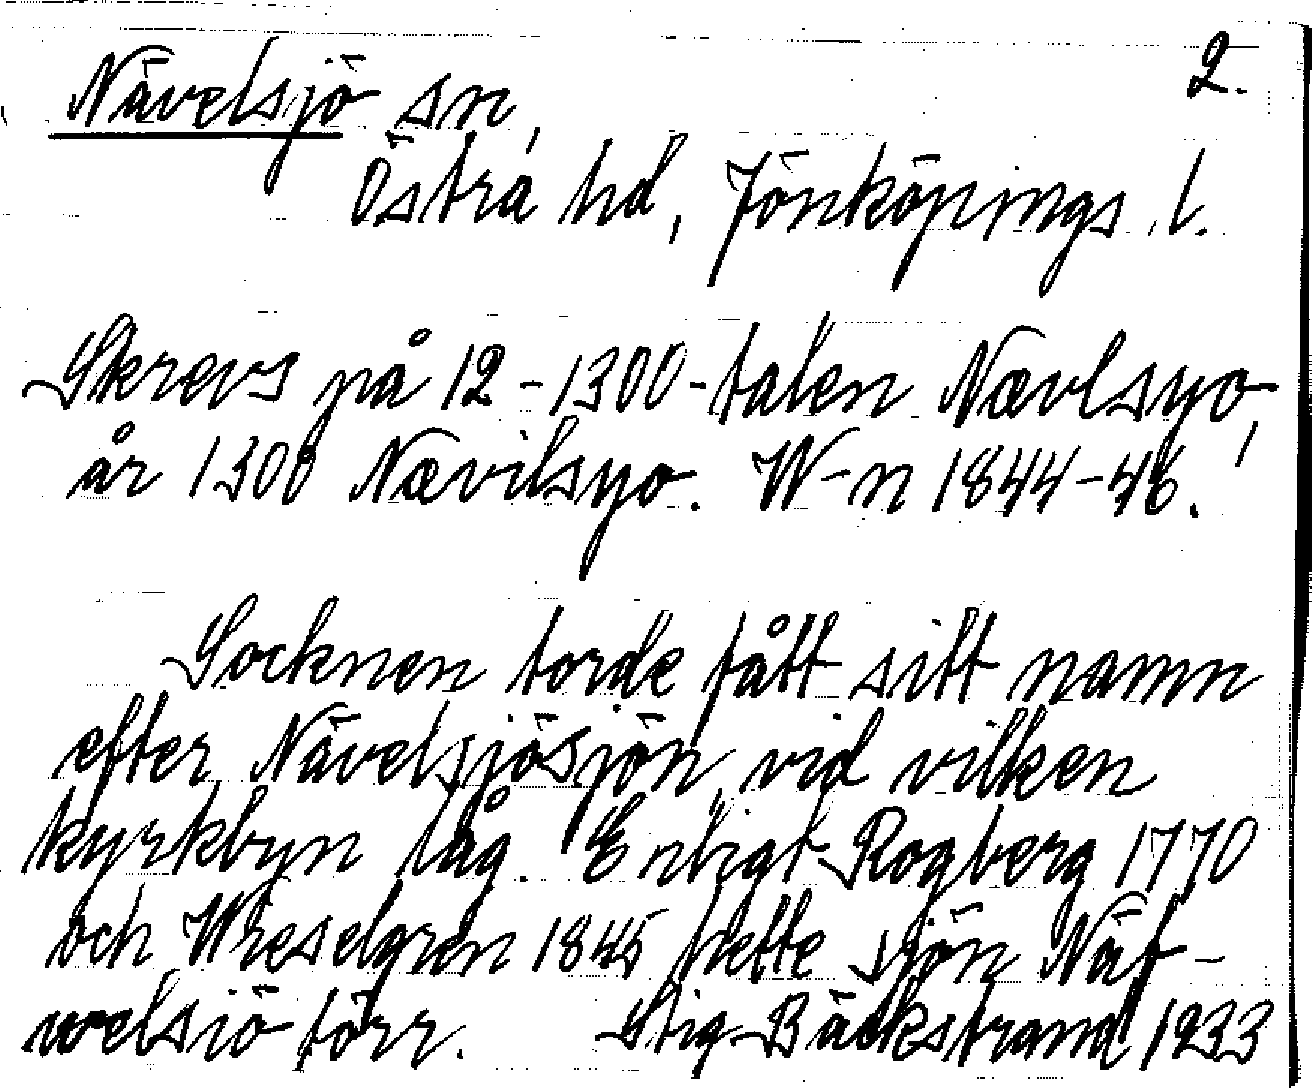 2.
Nävelsjö sn,
Östra hd, Jönköpings l.
Skrevs på 12-1300-talen Nævlsyo,
år 1300 Nævilsyo. W-n 1844-46.
Socknen torde fått sitt namn
efter Nävelsjösjön, vid vilken
kyrkbyn låg. Enligt Rogberg 1770
och Wieselgren 1845 hette sjön Näf-
welsiö förr. Stig Bäckstrand 1933